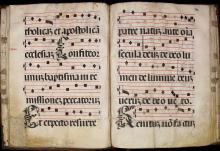 tholicaʒ et apostolicã
ecclesiaʒ Confiteor
unuʒ baptisma in re
missionem peccatoruʒ
Et expecto resurre
patre natuʒ ante oĩa
secula deuʒ de deo lu
men de lumine deuʒ
veruʒ de deo vero
Genituʒ nõ fa